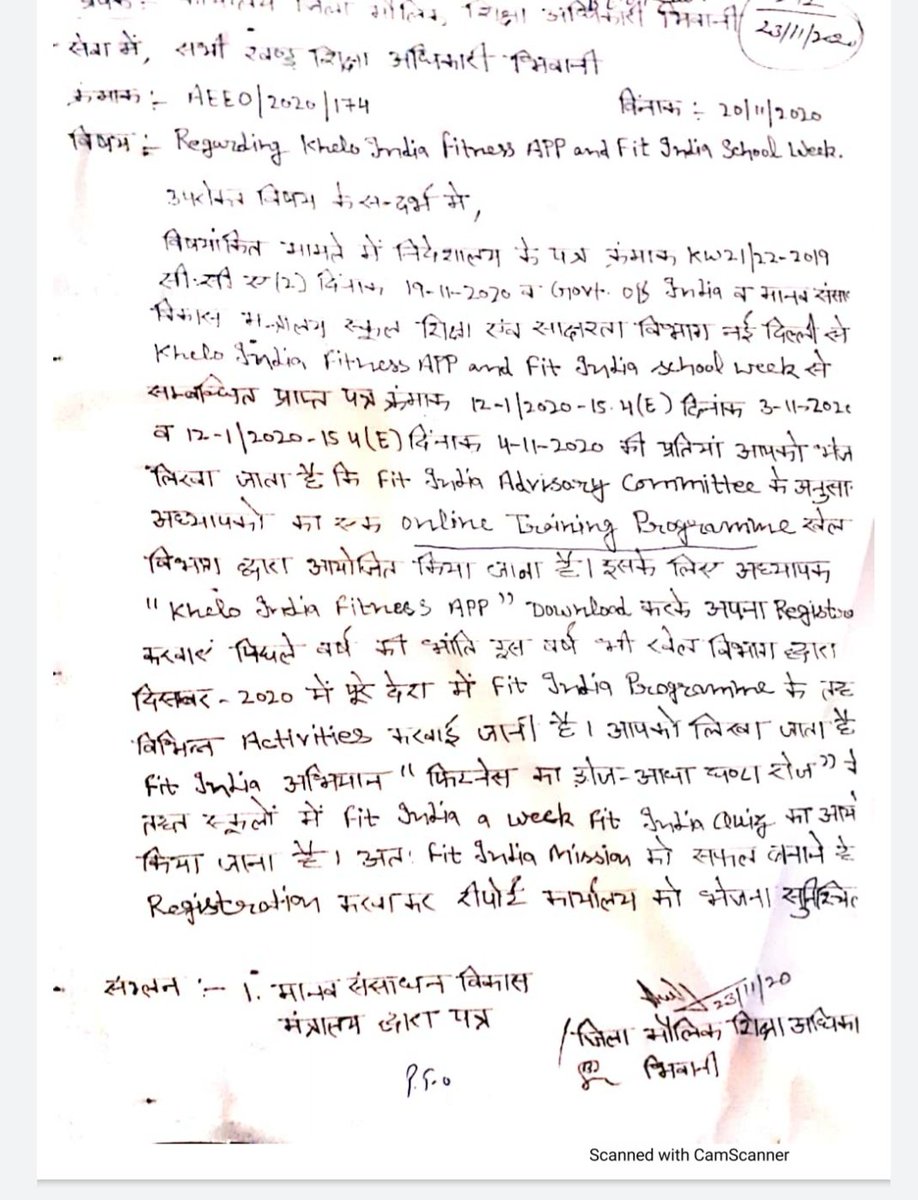 कार्यालय जिला मौलिक शिक्षा अधिकारी भिवानी
23/11/2020
सेवा में, सभी खण्ड शिक्षा अधिकारी भिवानी
क्रमांक :- AEEO/2020/174 दिनांक :- 20/11/2020
विषय :- Regarding Khelo India Fitness APP and Fit India School Week.
उपरोक्त विषय के सन्दर्भ में,
विषयांकित मामले में निदेशालय के पत्र क्रमांक KW21/22-2019
सी.सी ए(2) दिनांक 19-11-2020 व Govt. of India व मानव संसा
विकास मन्त्रालय स्कूल शिक्षा एंव साक्षरता विभाग नई दिल्ली से
Khelo India Fitness APP and Fit India School week से
सम्बन्धित प्राप्त पत्र क्रमांक 12-1/2020-IS.4(E) दिनांक 3-11-202
व 12-1/2020-IS 4(E) दिनांक 4-11-2020 की प्रतियां आपको भेज
लिखा जाता है कि Fit India Advisory Committee के अनुसा
अध्यापकों का एक online Training Programme खेल
विभाग द्वारा आयोजित किया जाना है। इसके लिए अध्यापक
"Khelo India Fitness APP" Download करके अपना Registra
करवाएं पिछले वर्ष की भांति इस वर्ष भी खेल विभाग द्वारा
दिसम्बर - 2020 में पूरे देश में Fit India Programme के तह
विभिन्न Activities करवाई जानी है। आपको लिखा जाता है
Fit India अभियान "फिटनेस का डोज-आधा घण्टा रोज"
तहत स्कूलों में Fit India a week Fit India Quiz का आयो
किया जाना है। अतः Fit India Mission को सफल बनाने हे
Registration करवाकर रिपोर्ट कार्यालय को भेजना सुनिश्चित
संलग्न :- 1. मानव संसाधन विकास
मंत्रालय द्वारा पत्र
23/11/20
जिला मौलिक शिक्षा अधिका
भिवानी
P.T.O
Scanned with CamScanner